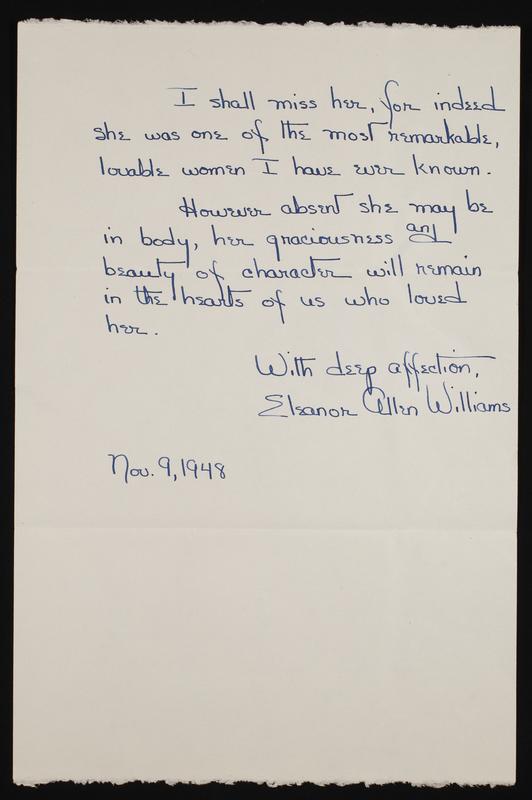 I shall miss her, for indeed
she was one of the most remarkable,
lovable women I have ever known.
However absent she may be
in body, her graciousness and
beauty of character will remain
in the hearts of us who loved
her.
With deep affection,
Eleanor Allen Williams
Nov. 9, 1948